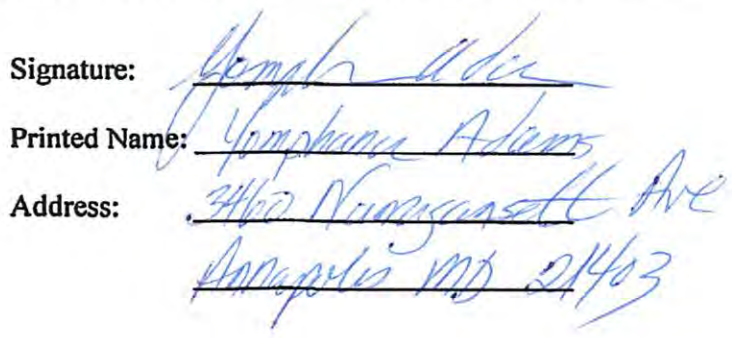 Signature: Yomph Ada
Printed Name: Yomphana Adams
Address: 3460 Narragansett Ave
Annapolis MD 21403